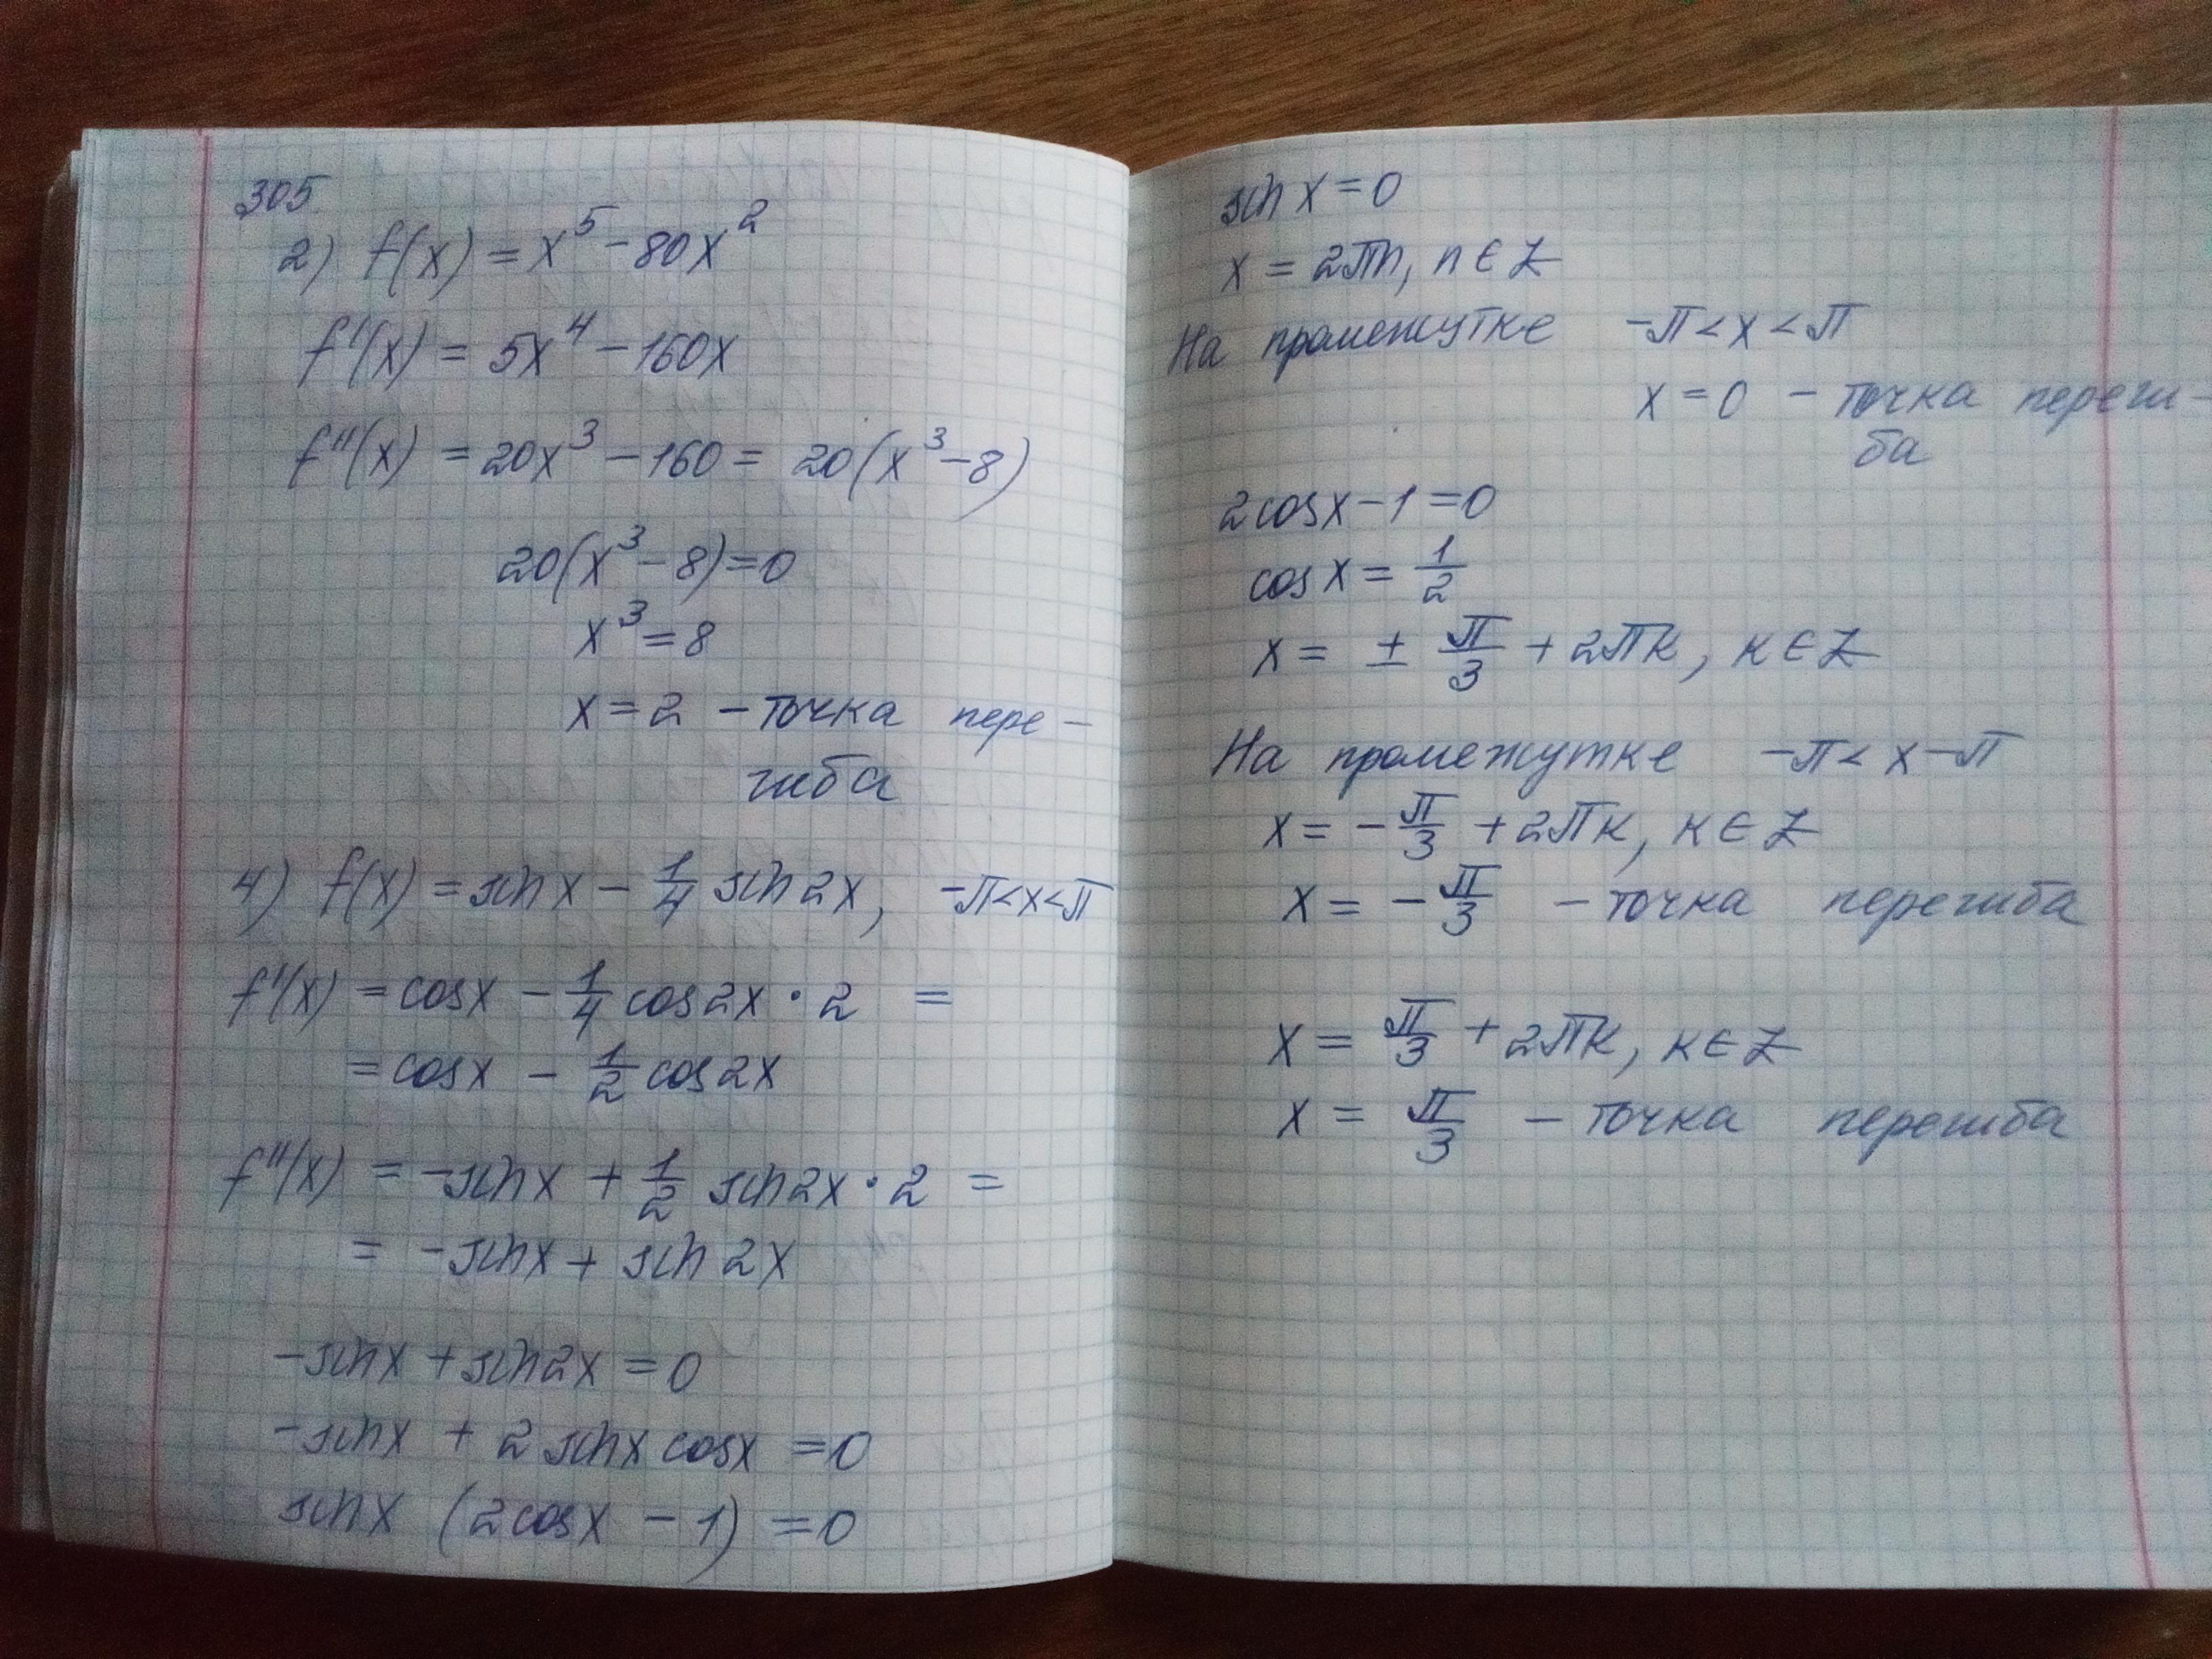 305
2) f(x) = x⁵ - 80x²
f'(x) = 5x⁴ - 160x
f''(x) = 20x³ - 160 = 20(x³ - 8)
20(x³ - 8) = 0
x³ = 8
x = 2 - точка пере-
гиба
4) f(x) = sin x - 1/4 sin 2x, -π < x < π
f'(x) = cos x - 1/4 cos 2x · 2 =
= cos x - 1/2 cos 2x
f''(x) = -sin x + 1/2 sin 2x · 2 =
= -sin x + sin 2x
-sin x + sin 2x = 0
-sin x + 2 sin x cos x = 0
sin x (2cos x - 1) = 0
sin x = 0
x = 2πn, n ∈ Z
На промежутке -π < x < π
x = 0 - точка переги-
ба
2cos x - 1 = 0
cos x = 1/2
x = ± π/3 + 2πк, к ∈ Z
На промежутке -π < x - π
x = - π/3 + 2πк, к ∈ Z
x = - π/3 - точка перегиба
x = π/3 + 2πк, к ∈ Z
x = π/3 - точка перегиба